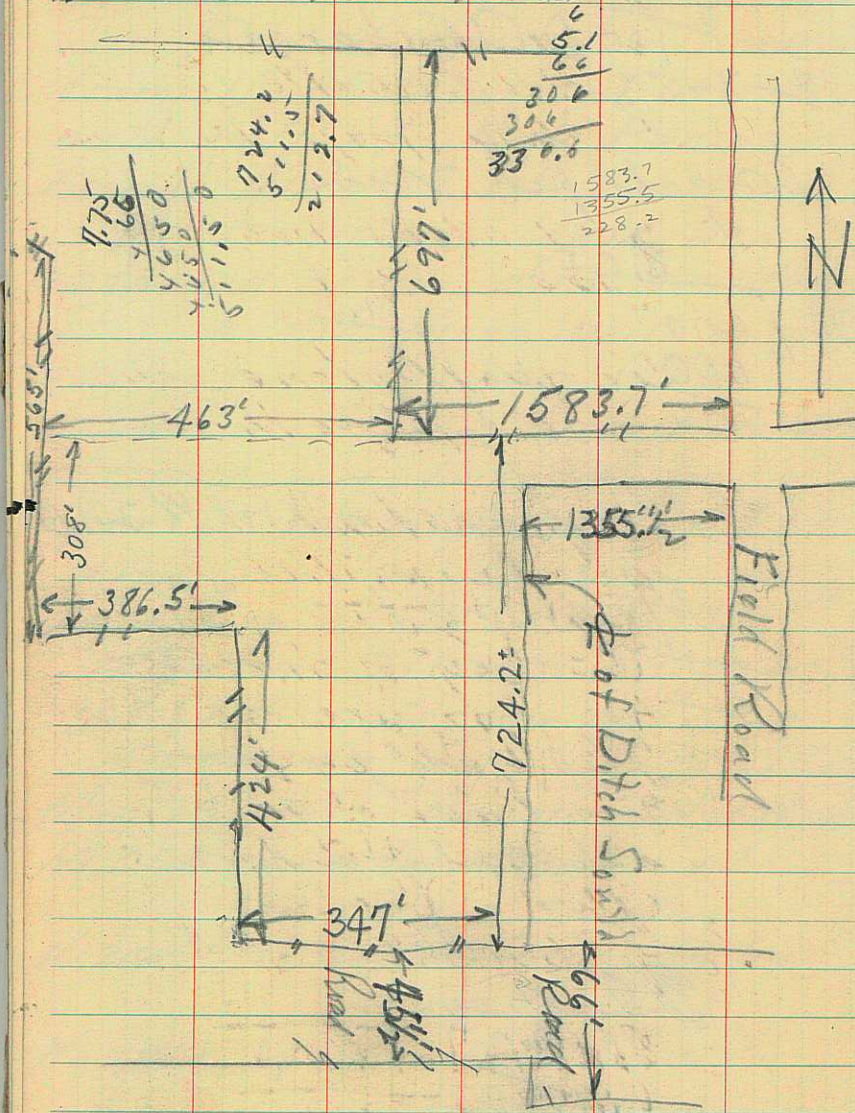 6
5.1
66
306
306
336.6
724.2
511.5
212.7
7.75
66
4650
4650
511.50
1583.7
1355.5
228.2
N
697'
565'
463'
1583.7'
308'
1355.'½
386.5'
Field Road
424'
724.2±
℄ of Ditch South
347'
Road
66'
Road